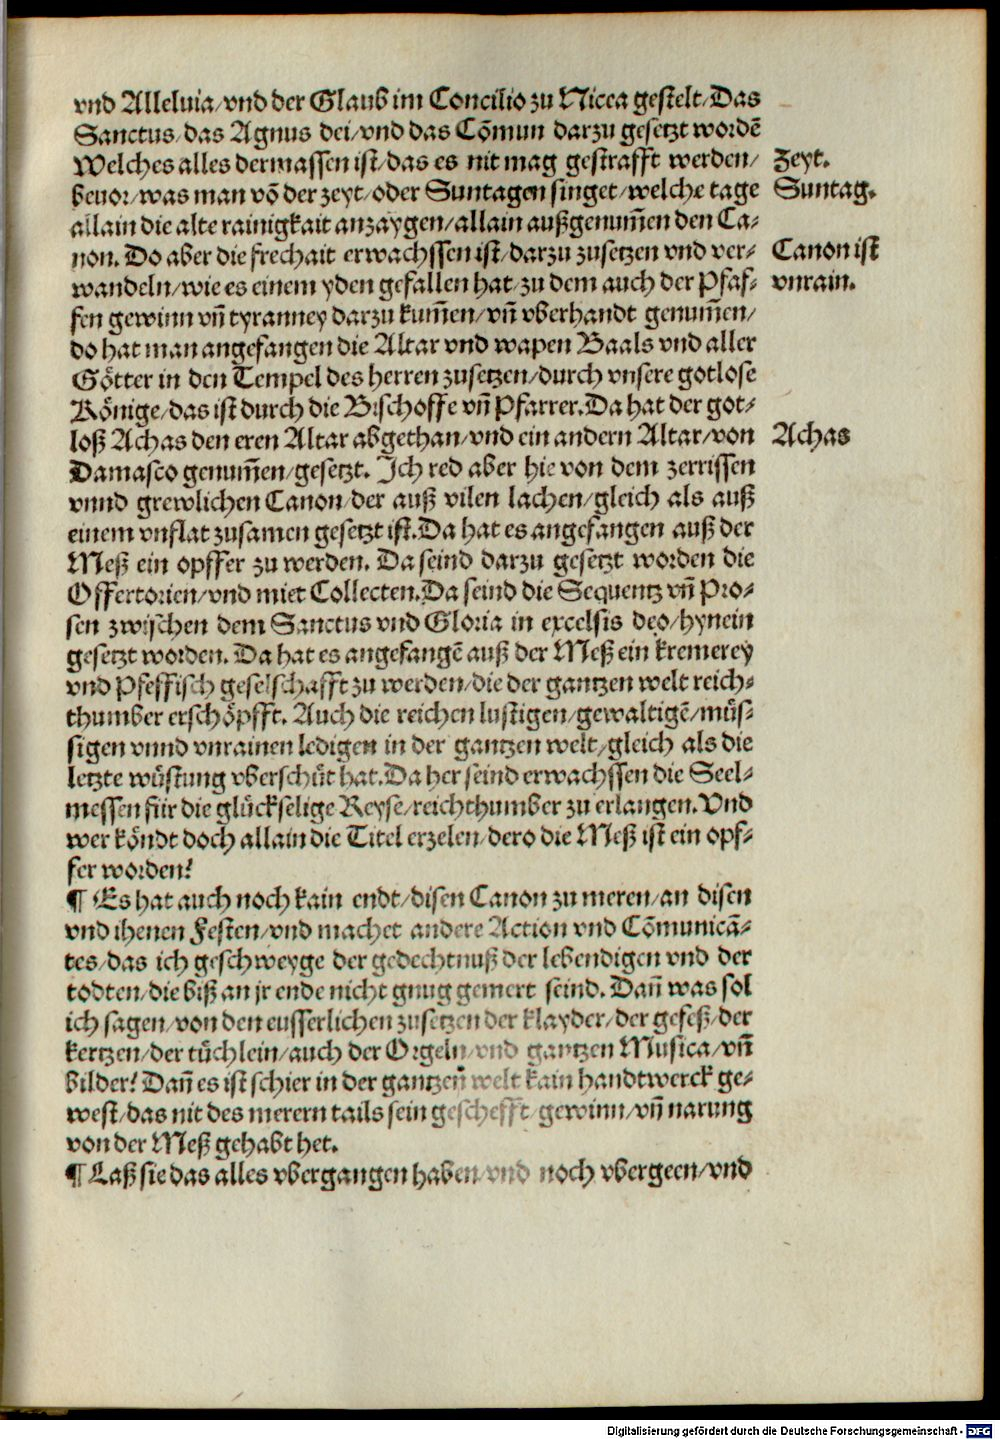 vnd Alleluia/vnd der Glaub im Concilio zu Nicea gestelt/Das
Sanctus/das Agnus dei/vnd das Cõmun darzu gesetzt wordẽ
Welches alles dermassen ist/das es nit mag gestrafft werden/
beuor/was man võ der zeyt/oder Suntagen singet/welche tage
allain die alte rainigkait anzaygen/allain außgenum̃en den Ca-
non. Do aber die frechait erwachssen ist/darzu zusetzen vnd ver-
wandeln/wie es einem yden gefallen hat/zu dem auch der Pfaf-
fen gewinn vñ tyranney darzu kum̃en/vñ vberhandt genum̃en/
do hat man angefangen die Altar vnd wapen Baals vnd aller
Götter in den Tempel des herren zusetzen/durch vnsere gotlose
Könige/das ist durch die Bischoffe vñ Pfarrer. Da hat der got-
loß Achas den eren Altar abgethan/vnd ein andern Altar/von
Damasco genum̃en/gesetzt. Ich red aber hie von dem zerrissen
vnnd grewlichen Canon/der auß vilen lachen/gleich als auß
einem vnflat zusamen gesetzt ist. Da hat es angefangen auß der
Meß ein opffer zu werden. Da seind darzu gesetzt worden die
Offertorien/vnd miet Collecten. Da seind die Sequentz vñ Pro-
sen zwischen dem Sanctus vnd Gloria in excelsis deo/hynein
gesetzt worden. Da hat es angefangẽ auß der Meß ein kremerey
vnd Pfeffisch geselschafft zu werden/die der gantzen welt reich-
thumber erschöpfft. Auch die reichen lustigen/gewaltigẽ/müs-
sigen vnnd vnrainen ledigen in der gantzen welt/gleich als die
letzte wüstung vberschüt hat. Da her seind erwachssen die Seel-
messen für die glückselige Reyse/reichthumber zu erlangen. Vnd
wer köndt doch allain die Titel erzelen/dero die Meß ist ein opf-
fer worden?
¶ Es hat auch noch kain endt/disen Canon zu meren/an disen
vnd ihenen Festen/vnd machet andere Action vnd Cõmunicã-
tes/das ich geschweyge der gedechtnuß der lebendigen vnd der
todten/die biß an jr ende nicht gnug gemert seind. Dañ was sol
ich sagen/von den eusserlichen zusetzen der klayder/der gefeß/der
kertzen/der tüchlein/auch der Orgeln/vnd gantzen Musica/vñ
bilder? Dañ es ist schier in der gantzeñ welt kain handtwerck ge-
west/das nit des merern tails sein geschefft/gewinn/vñ narung
von der Meß gehabt het.
¶ Laß sie das alles vbergangen haben/vnd noch vbergeen/vnd
Zeyt.
Suntag.
Canon ist
vnrain.
Achas
Digitalisierung gefördert durch die Deutsche Forschungsgemeinschaft - DFG